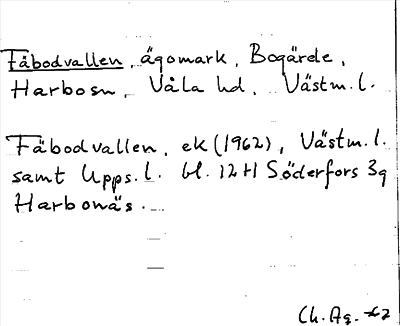 Fäbodvallen, ägomark, Bogärde,
Harbosn, Våla hd, Västm. l.
Fäbodvallen, ek (1962), Västm. l.
samt Upps. l. bl. 12H Söderfors 3g
Harbonäs.
Ch. Ag.